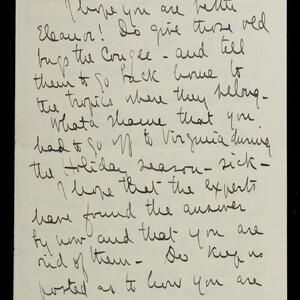 I hope you are better
Eleanor! Do give those old
bugs the Congee - and tell
them to go back home to
the tropics where they belong -
What a shame that you
had to go off to Virginia during
the Holiday season - sick -
I hope that the experts
have found the answer
by now and that you are
rid of them - Do keep us
posted as to how you are